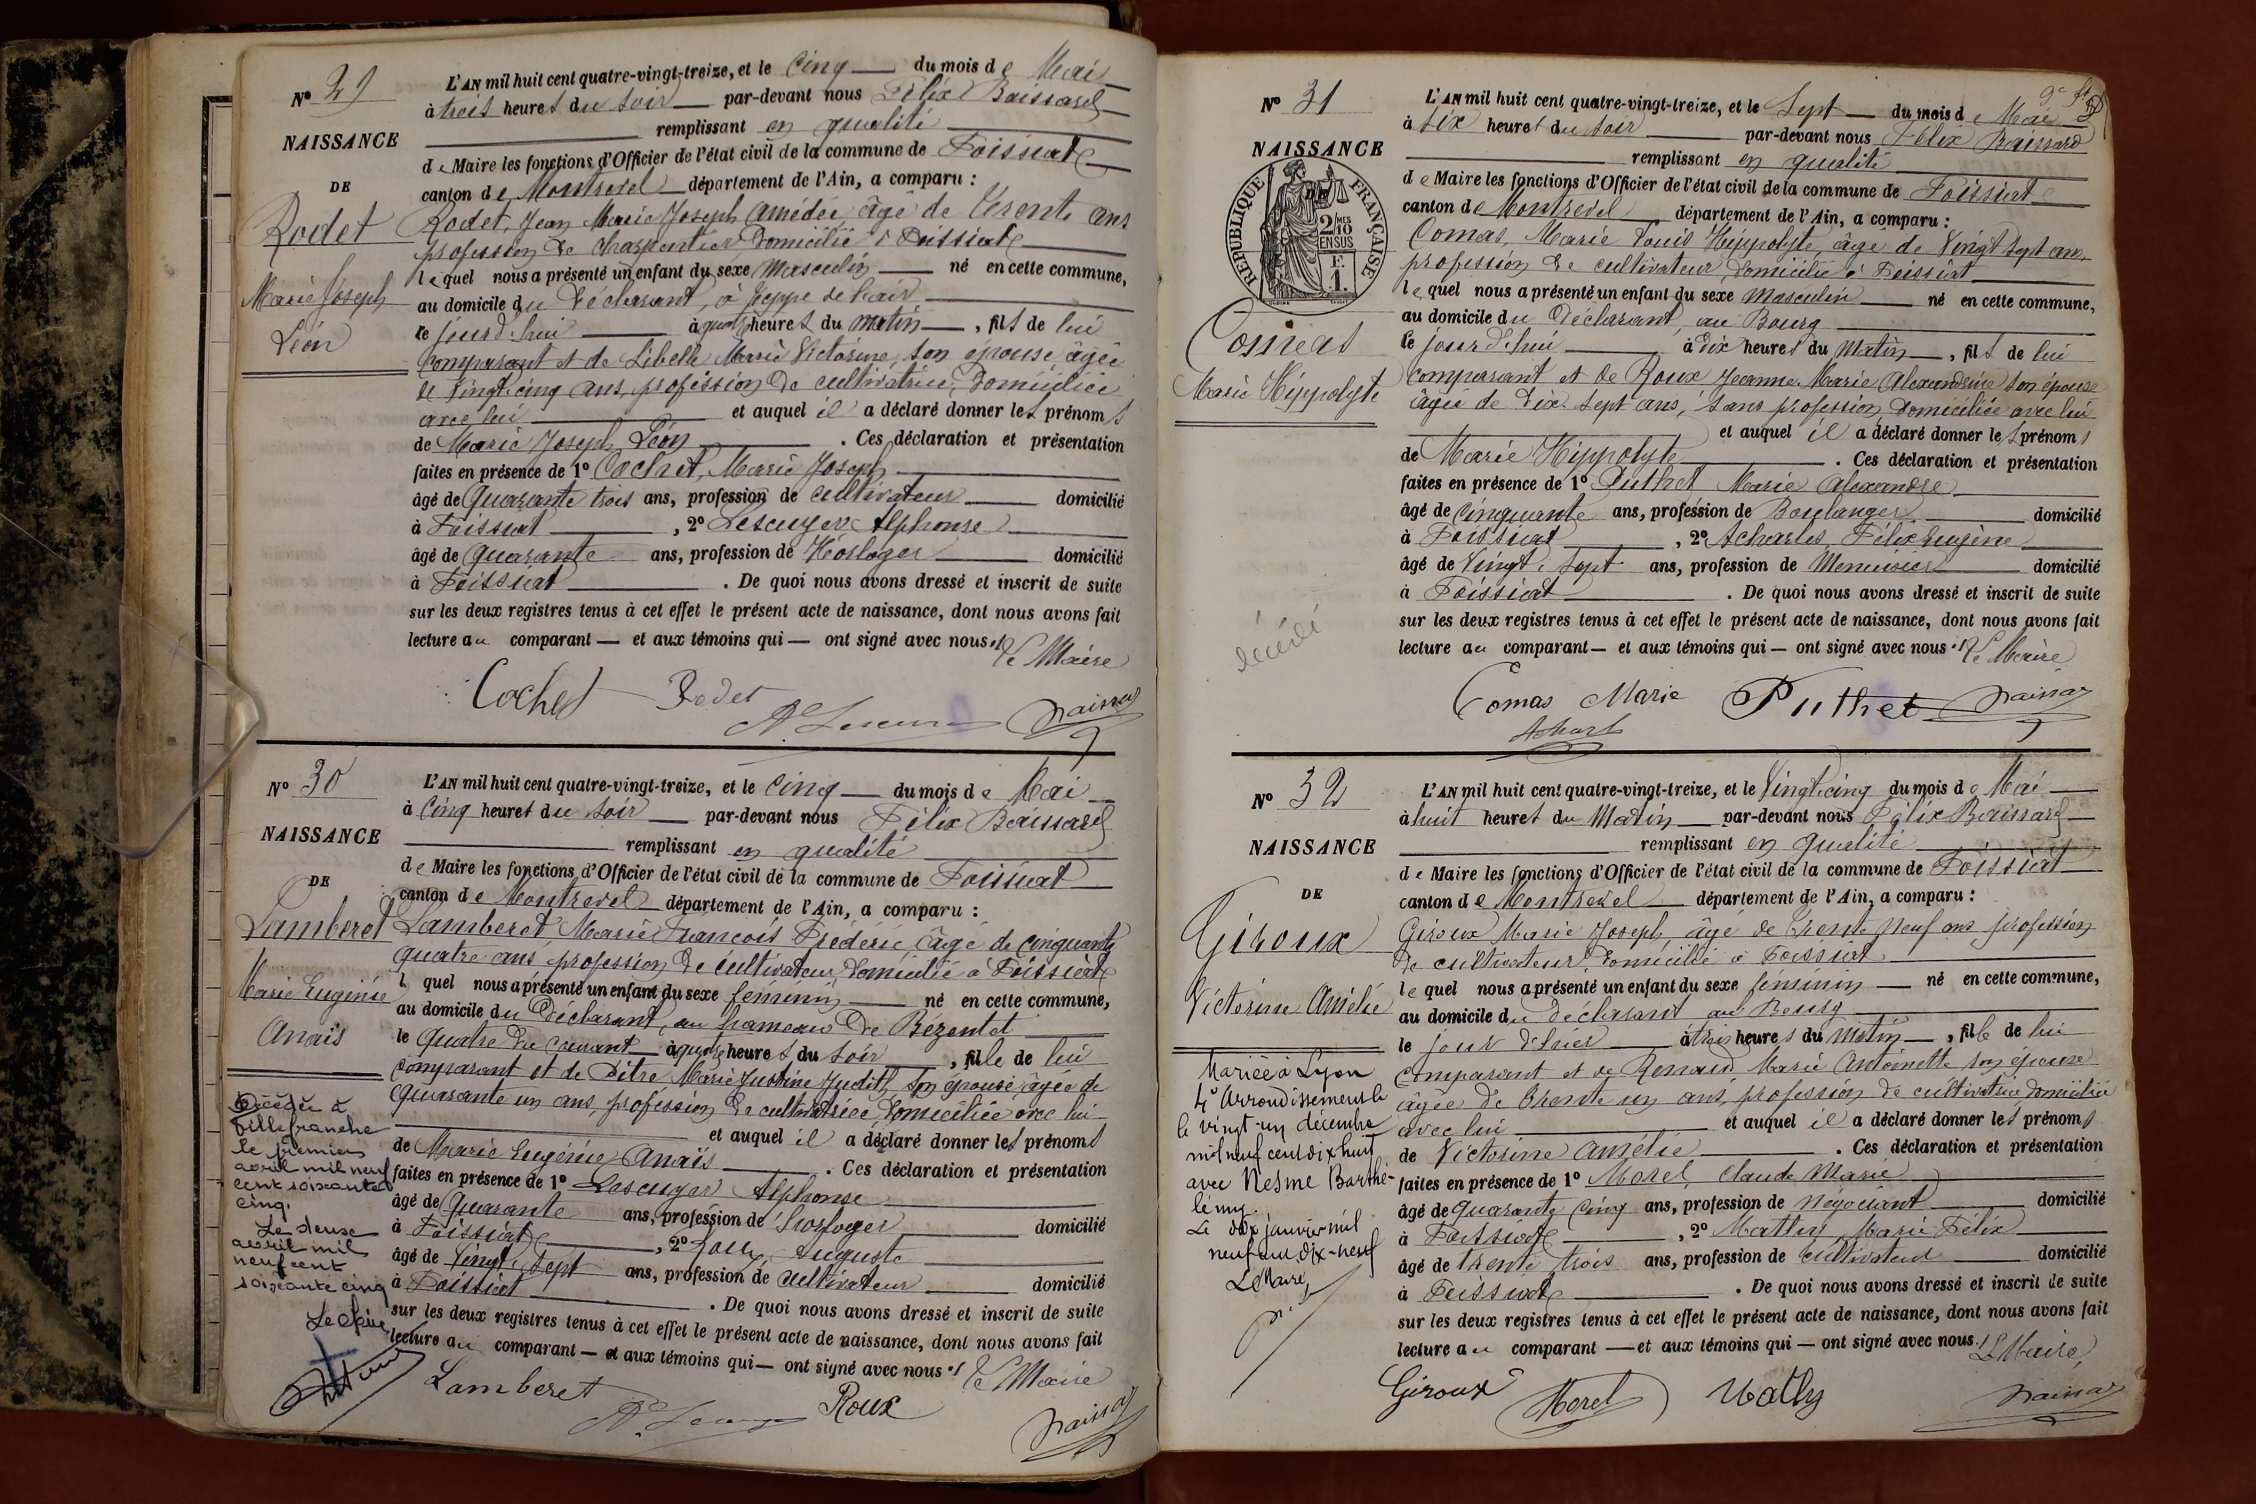 N° 29
NAISSANCE
DE
Rodet
Marie Joseph
Léon
L'AN mil huit cent quatre-vingt-treize, et le Cinq du mois de Mai
à trois heures du soir par-devant nous Félix Baissard
remplissant en qualité
de Maire les fonctions d'Officier de l'état civil de la commune de Foissiat
canton de Montrevel département de l'Ain, a comparu :
Rodet, Jean Marie Joseph Amédée, âgé de trente ans
profession de charpentier, domicilié à Foissiat
lequel nous a présenté un enfant du sexe Masculin né en cette commune,
au domicile du déclarant, à
le jourd'hui à quatre heures du matin, fils de lui
comparant et de Libelle Marie Victorine, son épouse âgée
de Vingt cinq ans, profession de cultivatrice, domiciliée
avec lui et auquel il a déclaré donner les prénoms
de Marie Joseph Léon. Ces déclaration et présentation
faites en présence de 1° Cochet, Marie Joseph
âgé de Quarante trois ans, profession de cultivateur domicilié
à Foissiat, 2° Lescuyer Alphonse
âgé de quarante ans, profession de Horloger domicilié
à Foissiat. De quoi nous avons dressé et inscrit de suite
sur les deux registres tenus à cet effet le présent acte de naissance, dont nous avons fait
lecture au comparant — et aux témoins qui — ont signé avec nous. Le Maire
Cochet Rodet
N° 30
NAISSANCE
DE
Lamberet
Marie Eugénie
Anaïs
Décédée à
Villefranche
le premier
avril mil neuf
cent soixante
cinq.
Le deux
avril mil
neuf cent
soixante cinq
L'AN mil huit cent quatre-vingt-treize, et le Cinq du mois de Mai
à Cinq heures du soir par-devant nous Félix Baissard
remplissant en qualité
de Maire les fonctions d'Officier de l'état civil de la commune de Foissiat
canton de Montrevel département de l'Ain, a comparu :
Lamberet Marie François Frédéric, âgé de cinquante
quatre ans, profession de cultivateur, domicilié à Foissiat
lequel nous a présenté un enfant du sexe féminin né en cette commune,
au domicile du Déclarant, au hameau de Bézentet
le quatre du courant à quatre heures du soir, fille de lui
comparant et de Pitre Marie Justine Judith, son épouse, âgée de
quarante un ans, profession de cultivatrice, domiciliée avec lui
et auquel il a déclaré donner les prénoms
de Marie Eugénie Anaïs. Ces déclaration et présentation
faites en présence de 1° Lescuyer Alphonse
âgé de Quarante ans, profession de horloger domicilié
à Foissiat, 2° Roux Auguste
âgé de Vingt sept ans, profession de cultivateur domicilié
à Foissiat. De quoi nous avons dressé et inscrit de suite
sur les deux registres tenus à cet effet le présent acte de naissance, dont nous avons fait
lecture au comparant — et aux témoins qui — ont signé avec nous. Le Maire
Lamberet Roux
N° 31
NAISSANCE
DE
REPUBLIQUE FRANÇAISE
2/10 MES
EN SUS
F.
1.
Comas
Marie Hippolyte
décédé
L'AN mil huit cent quatre-vingt-treize, et le Sept du mois de Mai
à six heures du soir par-devant nous Félix Baissard
remplissant en qualité
de Maire les fonctions d'Officier de l'état civil de la commune de Foissiat
canton de Montrevel département de l'Ain, a comparu :
Comas, Marie Louis Hippolyte, âgé de Vingt Sept ans,
profession de cultivateur, domicilié à Foissiat
lequel nous a présenté un enfant du sexe masculin né en cette commune,
au domicile du Déclarant, au Bourg
le jourd'hui à dix heures du matin, fils de lui
comparant et de Roux Jeanne Marie Alexandrine son épouse
âgée de dix sept ans, sans profession, domiciliée avec lui
et auquel il a déclaré donner les prénoms
de Marie Hippolyte. Ces déclaration et présentation
faites en présence de 1° Puthet Marie Alexandre
âgé de cinquante ans, profession de Boulanger domicilié
à Foissiat, 2° Achard, Félix Eugène
âgé de Vingt sept ans, profession de Menuisier domicilié
à Foissiat. De quoi nous avons dressé et inscrit de suite
sur les deux registres tenus à cet effet le présent acte de naissance, dont nous avons fait
lecture au comparant — et aux témoins qui — ont signé avec nous. Le Maire
Comas Marie Puthet
Achard
N° 32
NAISSANCE
DE
Giroux
Victorine Amélie
Mariée à Lyon
4e Arrondissement le
le vingt-un décembre
mil neuf cent dix huit
avec Nesme Barthé-
lémy.
Le dix janvier mil
neuf cent dix-neuf
Le Maire,
L'AN mil huit cent quatre-vingt-treize, et le Vingt-cinq du mois de Mai
à huit heures du Matin par-devant nous Félix Baissard
remplissant en qualité
de Maire les fonctions d'Officier de l'état civil de la commune de Foissiat
canton de Montrevel département de l'Ain, a comparu :
Giroux Marie Joseph, âgé de trente neuf ans profession
de cultivateur, domicilié à Foissiat
lequel nous a présenté un enfant du sexe féminin né en cette commune,
au domicile du déclarant au Bourg
le jour d'hier à trois heures du matin, fille de lui
comparant et de Renaud Marie Antoinette son épouse
âgée de trente un ans, profession de cultivatrice domiciliée
avec lui et auquel il a déclaré donner les prénoms
de Victorine Amélie. Ces déclaration et présentation
faites en présence de 1° Morel, Claude Marie
âgé de quarante cinq ans, profession de négociant domicilié
à Foissiat, 2° Mathy, Marie Félix
âgé de trente trois ans, profession de cultivateur domicilié
à Foissiat. De quoi nous avons dressé et inscrit de suite
sur les deux registres tenus à cet effet le présent acte de naissance, dont nous avons fait
lecture au comparant — et aux témoins qui — ont signé avec nous. Le Maire,
Giroux Morel Mathy